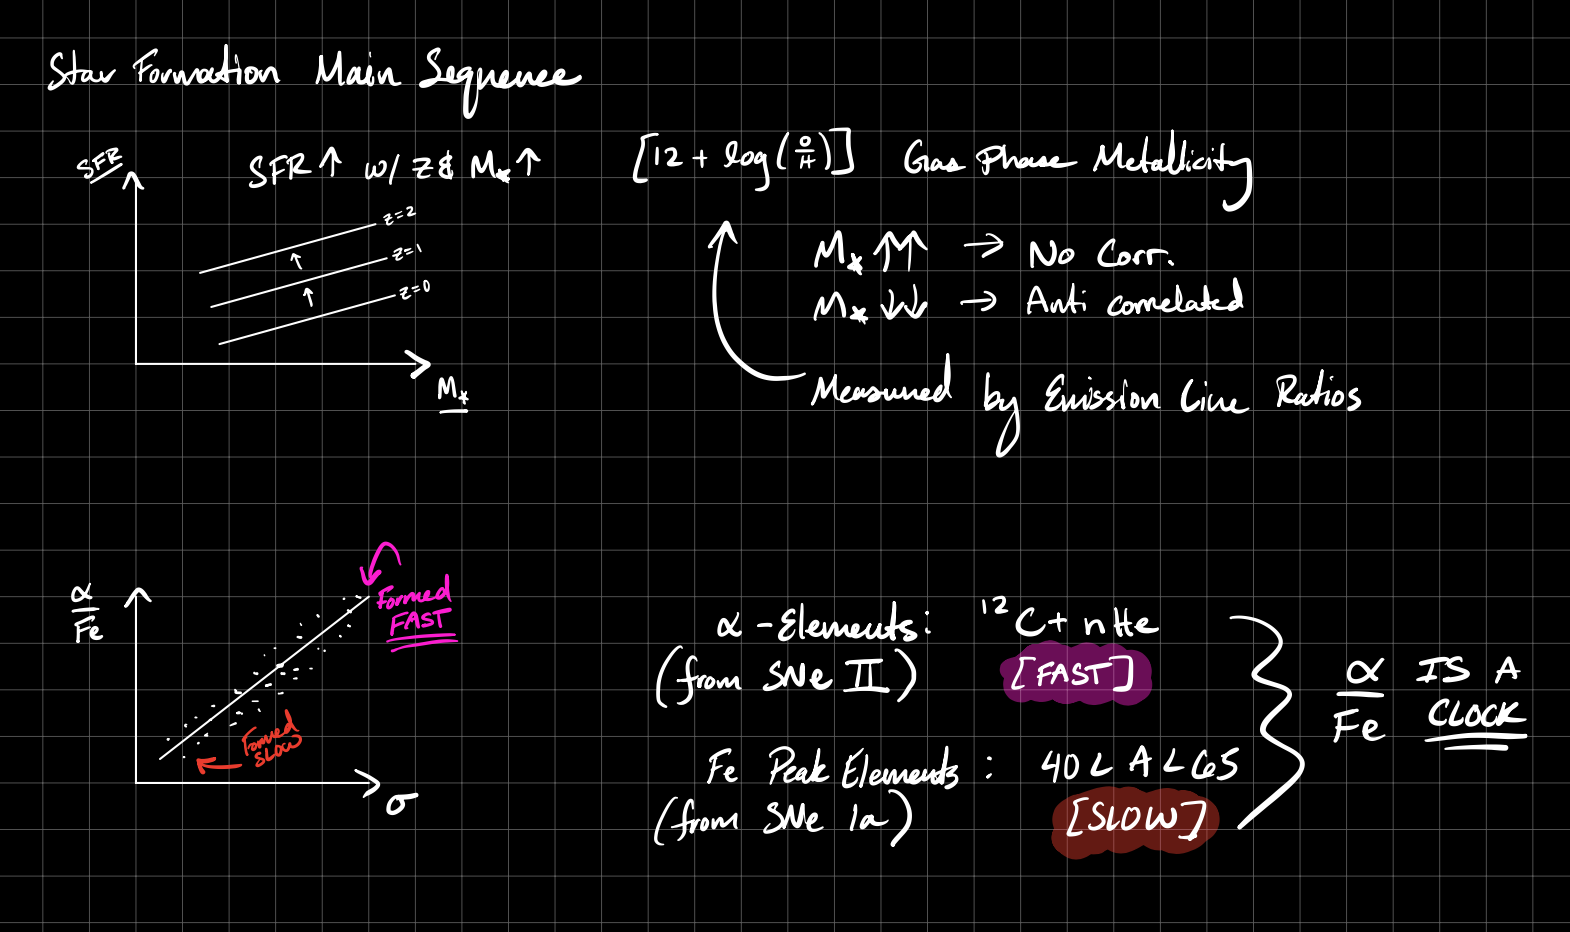 Star Formation Main Sequence
SFR
SFR ↑ w/ z & M* ↑
z=2
z=1
z=0
M*
[12 + log(O/H)] Gas Phase Metallicity
M* ↑↑ → No Corr.
M* ↓↓ → Anti correlated
Measured by Emission Line Ratios
α/Fe
Formed
FAST
Formed
SLOW
σ
α-Elements: ¹²C + nHe
(from SNe II) [FAST]
Fe Peak Elements: 40 < A < 65
(from SNe 1a) [SLOW]
α/Fe IS A
CLOCK